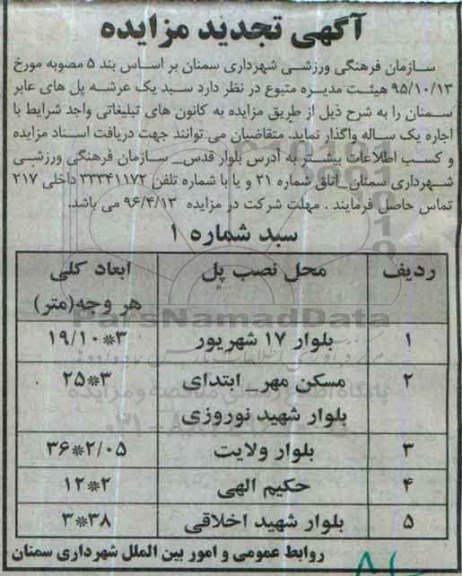 آگهی تجدید مزایده
سازمان فرهنگی ورزشی شهرداری سمنان بر اساس بند ۵ مصوبه مورخ
۹۵/۱۰/۱۳ هیئت مدیره متبوع در نظر دارد سبد یک عرشه پل های عابر
سمنان را به شرح ذیل از طریق مزایده به کانون های تبلیغاتی واجد شرایط با
اجاره یک ساله واگذار نماید. متقاضیان می توانند جهت دریافت اسناد مزایده
و کسب اطلاعات بیشتر به آدرس بلوار قدس_ سازمان فرهنگی ورزشی
شهرداری سمنان_اتاق شماره ۲۱ و یا با شماره تلفن ۳۳۳۴۱۱۷۲ داخلی ۲۱۷
تماس حاصل فرمایند . مهلت شرکت در مزایده ۹۶/۴/۱۳ می باشد.
سبد شماره ۱
ردیف محل نصب پل ابعاد کلی
هر وجه(متر)
۱ بلوار ۱۷ شهریور ۳*۱۹/۱۰
۲ مسکن مهر_ ابتدای ۳*۲۵
بلوار شهید نوروزی
۳ بلوار ولایت ۲/۰۵*۳۶
۴ حکیم الهی ۲*۱۲
۵ بلوار شهید اخلاقی ۳۸*۳
روابط عمومی و امور بین الملل شهرداری سمنان
ParsNamadData